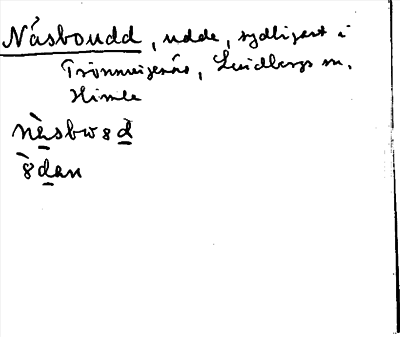 Näsboudd, udde, sydligast i
Trönningenäs, Lindbergs sn,
Himle
nàsbω8d̀
8̀dan